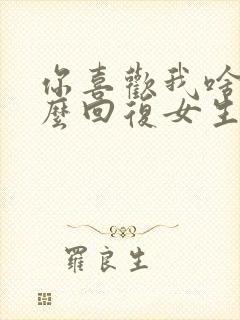 你喜歡我啥
麼回復女生
羅良生